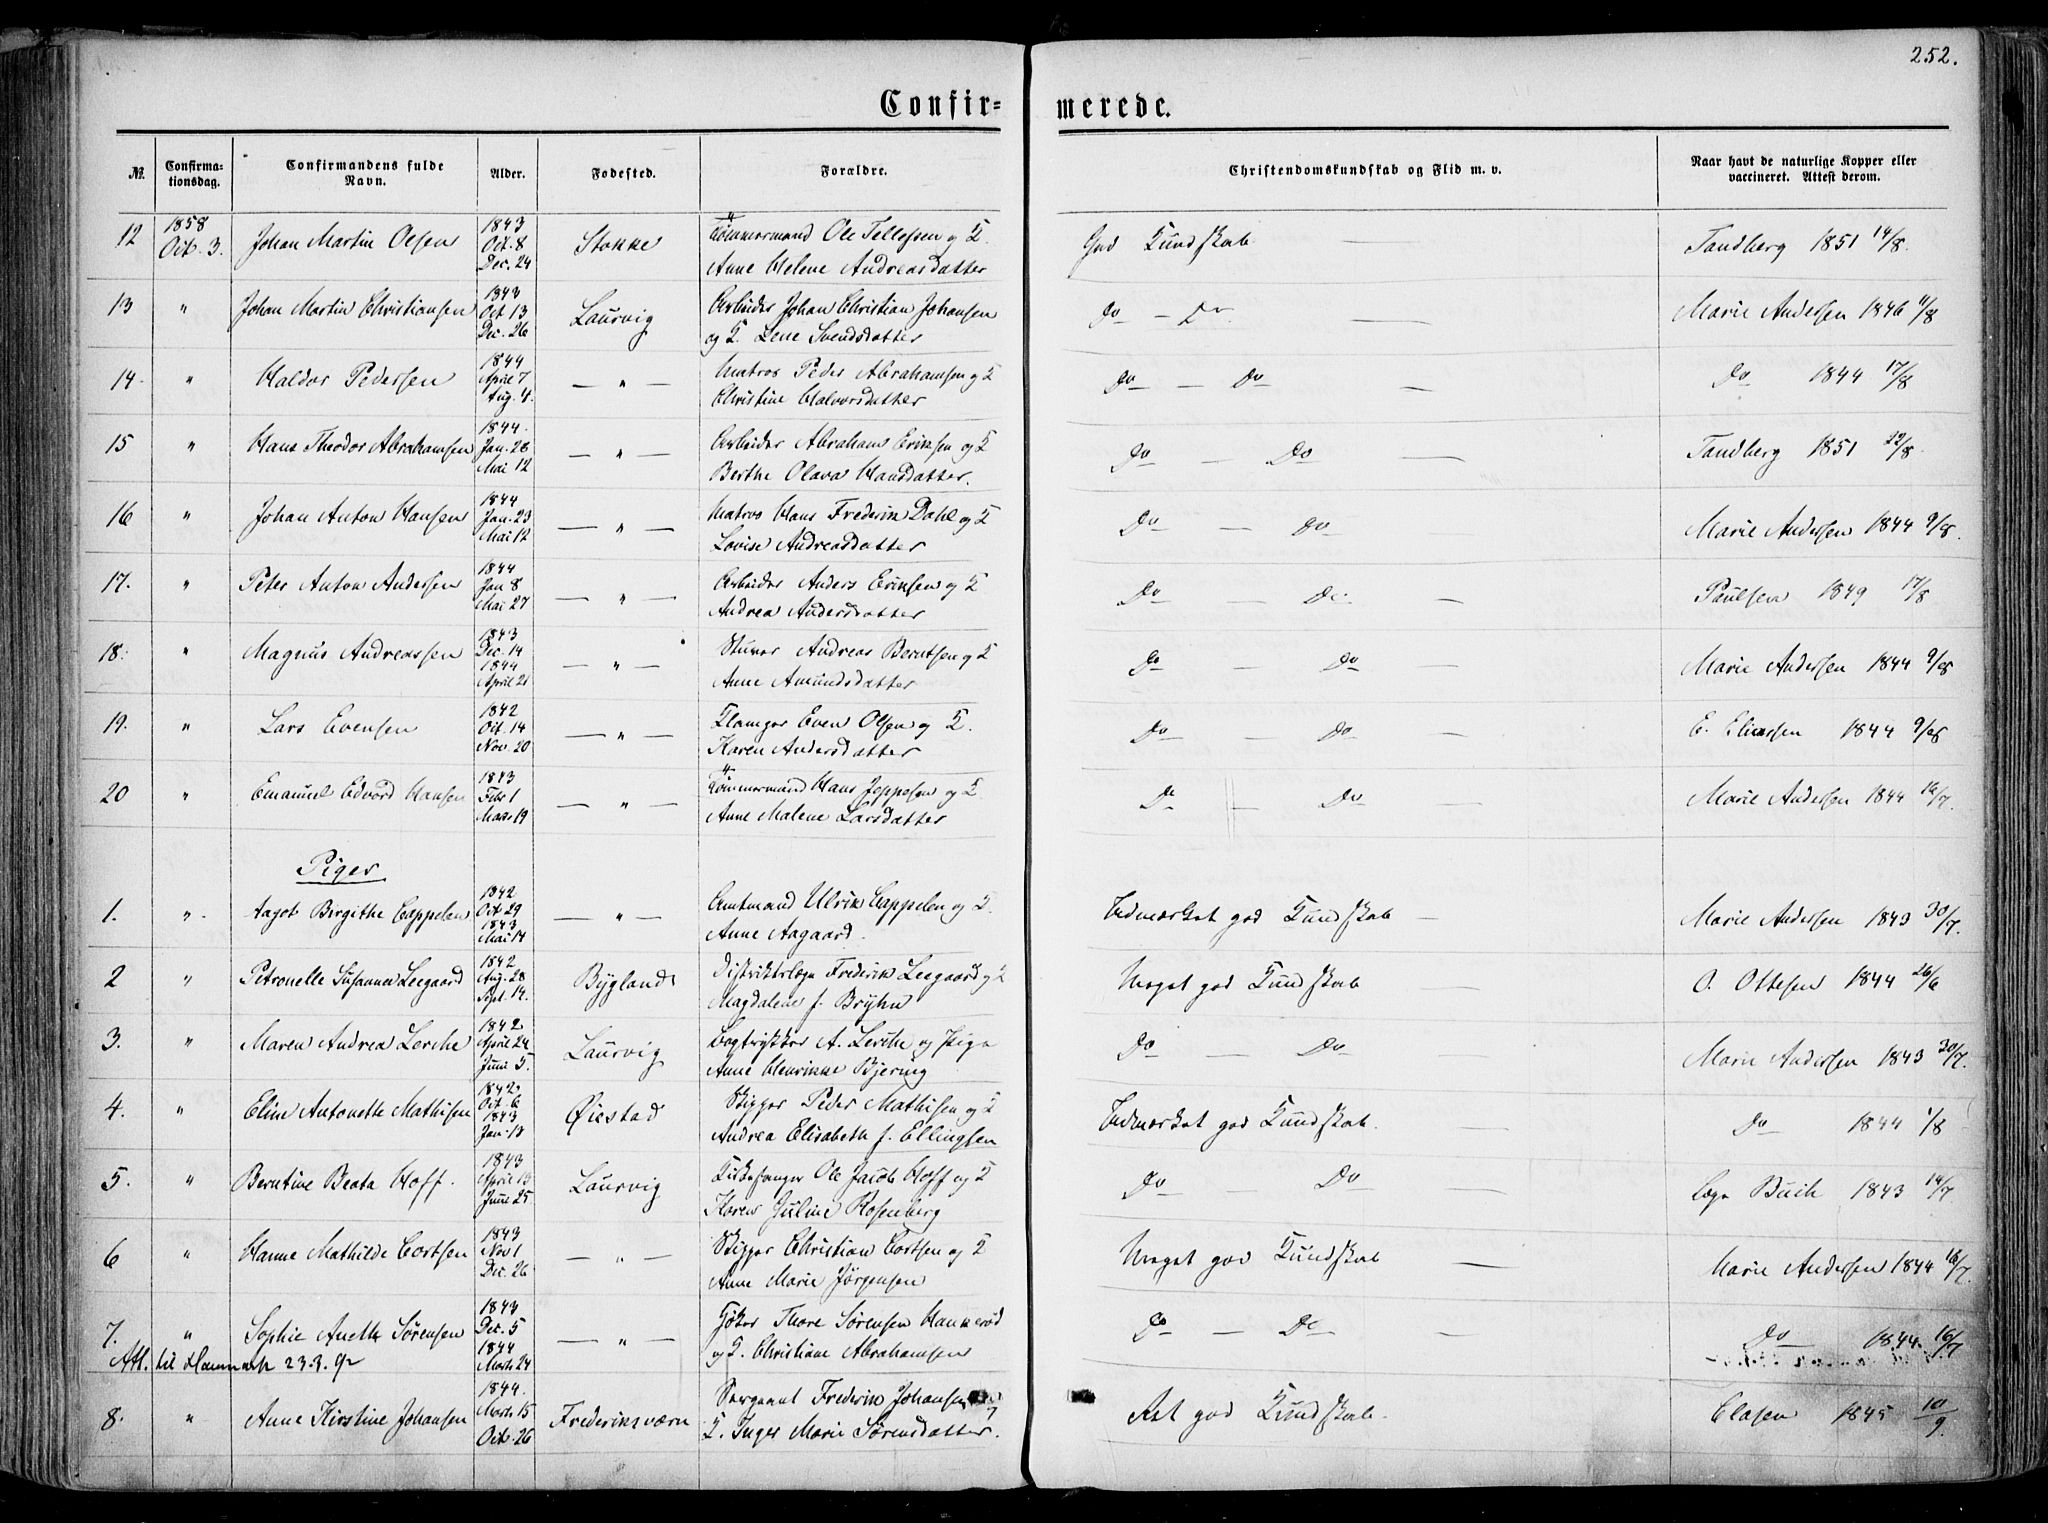 252.
Confir- merede.
No. Confirma-tionsdag. Confirmandens fulde Navn. Alder. Fødested. Forældre. Christendomskundskab og Flid m. v. Naar havt de naturlige Kopper eller vaccineret. Attest derom.
12 1858 Oct. 3. Johan Martin Olsen 1843 Oct. 8 Dec. 24 Stokke Tømmermand Ole Tellefsen og K. Anne Helene Andreasdatter God Kundskab — Tandberg 1851 14/8.
13 " Johan Martin Christiansen 1843 Oct 13 Dec. 26 Laurvig Arbeider Johan Christian Johansen og K. Lene Svendsdatter Do — Do — Marie Andersen 1846 11/8
14. " Haldor Pedersen 1844 April 7 Aug. 4. — " — Matros Peder Abrahamsen og K Christine Halvorsdatter Do — Do — Do 1844 17/8
15 " Hans Theodor Abrahamsen 1844. Jan. 28 Mai 12 — " — Arbeider Abraham Eriksen og K Berthe Olava Hansdatter. Do — Do — Tandberg 1851 22/8.
16 " Johan Anton Hansen 1844 Jan. 23 Mai 12 — " — Matros Hans Frederik Dahl og K Lovise Andreasdatter Do — Do Marie Andersen 1844 9/8.
17. " Peter Anton Andersen 1844 Jan 8 Mai 27 — " — Arbeider Anders Eriksen og K Andrea Andersdatter Do — Do — Paulsen 1849 17/8
18. " Magnus Andreassen 1843 Dec. 14 1844 April 21 — " — Stuver Andreas Berntsen og K Anne Amundsdatter Do — Do — Marie Andersen 1844 9/8
19. " Lars Evensen 1842 Oct. 14 Nov. 20 — " — Even Olsen og K. Karen Andersdatter Do — Do — E. Eliassen 1844 9/8
20 " Emanuel Edvard Hansen 1843 Febr 1 Marts 19 — " — Tømmermand Hans Jeppesen og K Anne Malene Larsdatter Do — Do Marie Andersen 1844 16/7.
Piger
1. " Aagot Birgithe Cappelen 1842 Oct. 29 1843 Mai 14 — " — Amtmand Ulrik Cappelen og K. Anne Aagaard. Udmærket god Kundskab — Marie Andersen 1843 30/7.
2 " Petronelle Susanne Leegaard 1842 Aug. 28 Sept. 14. Bygland Distriktslæge Frederik Leegaard og K Magdalene f. Bryhn Meget god Kundskab — O. Ottesen 1844 26/6
3. " Maren Andrea Lerche 1842 April 24 Juni 5. Laurvig Bogtrykker A. Lerche og Pige Anne Henrikke Bjering Do — Do — Marie Andersen 1843 30/7.
4. " Elise Antonette Mathisen 1842 Oct. 6 1843 Jan. 13 Øiestad Skipper Peder Mathisen og K Andrea Elisabeth f. Ellingsen Udmærket god Kundskab. — Do 1844 1/8
5. " Berntine Beata Hoff. 1843 April 13 Juni 25 Laurvig Ole Jacob Hoff og K Karen Juline Rosenberg Do — Do — Læge Buch 1843 14/7
6 " Hanne Mathilde Cortsen 1843 Nov 1 Dec. 26 — " — Skipper Christian Cortsen og K Anne Marie Jørgensen Meget god Kundskab — Marie Andersen 1844 16/7.
7. " Sophie Anette Sørensen 1843 Dec. 5 1844 Marts 24 — " — Thore Sørensen Hankerød og K. Christiane Abrahamsen Do — Do — Do 1844. 16/7
Att. til 23.3.92
8. " Anne Kirstine Johansen 1844. Marts 15 Oct. 26 Frederiksværn Sergeant Frederik Johansen og K. Inger Marie Sørensdatter. Ret god Kundskab. Clasen 1845 10/9.